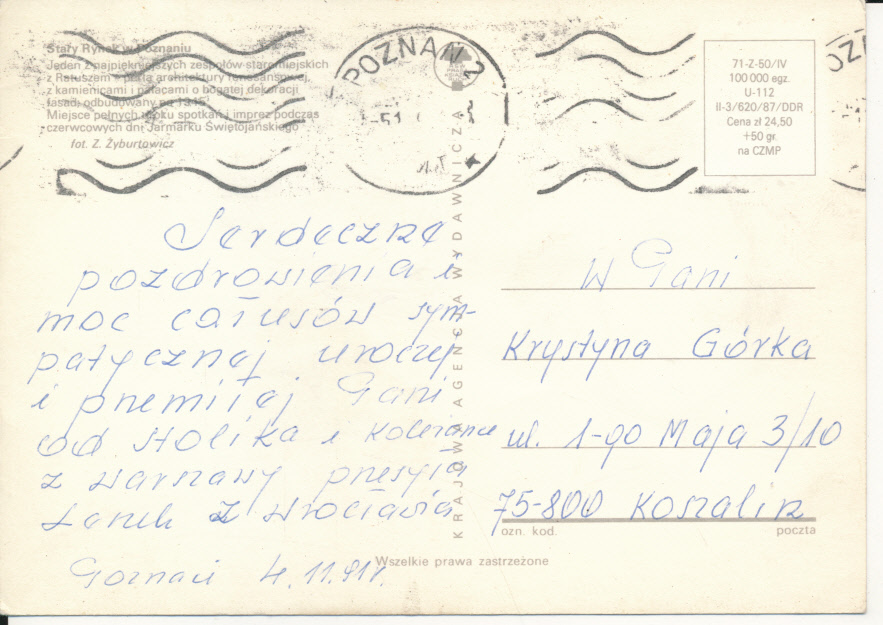 Stary Rynek w Poznaniu
Jeden z najpiękniejszych zespołów staromiejskich
z Ratuszem - perłą architektury renesansowej,
z kamienicami i pałacami o bogatej dekoracji
fasad, odbudowany po 1945
Miejsce pełnych uroku spotkań i imprez podczas
czerwcowych dni Jarmarku Świętojańskiego
fot. Z. Żyburtowicz
POZNAŃ 2
71-Z-50/IV
100 000 egz.
U-112
II-3/620/87/DDR
Cena zł 24,50
+50 gr.
na CZMP
KRAJOWA AGENCJA WYDAWNICZA
Serdeczne
pozdrowienia i
moc całusów sym-
patycznej uroczej
i przemiłej Pani
od Stolika i
z Warszawy przesyła
z Wrocławia
Poznań 4.11.91r.
W Pani
Krystyna Górka
ul. 1-go Maja 3/10
75-800 Koszalin
ozn. kod. poczta
Wszelkie prawa zastrzeżone